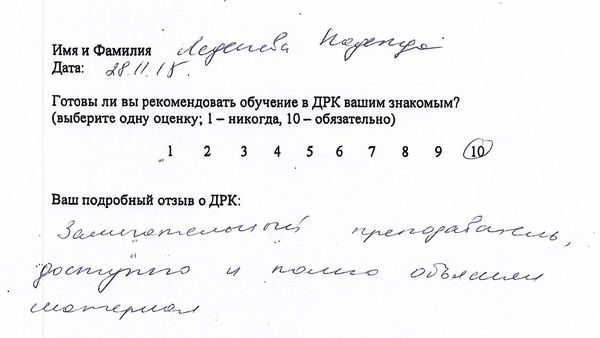 Имя и Фамилия Леденева Надежда
Дата: 28.11.18.
Готовы ли вы рекомендовать обучение в ДРК вашим знакомым?
(выберите одну оценку; 1 – никогда, 10 – обязательно)
1 2 3 4 5 6 7 8 9 10
Ваш подробный отзыв о ДРК:
Замечательный преподаватель,
доступно и полно объяснил
материал